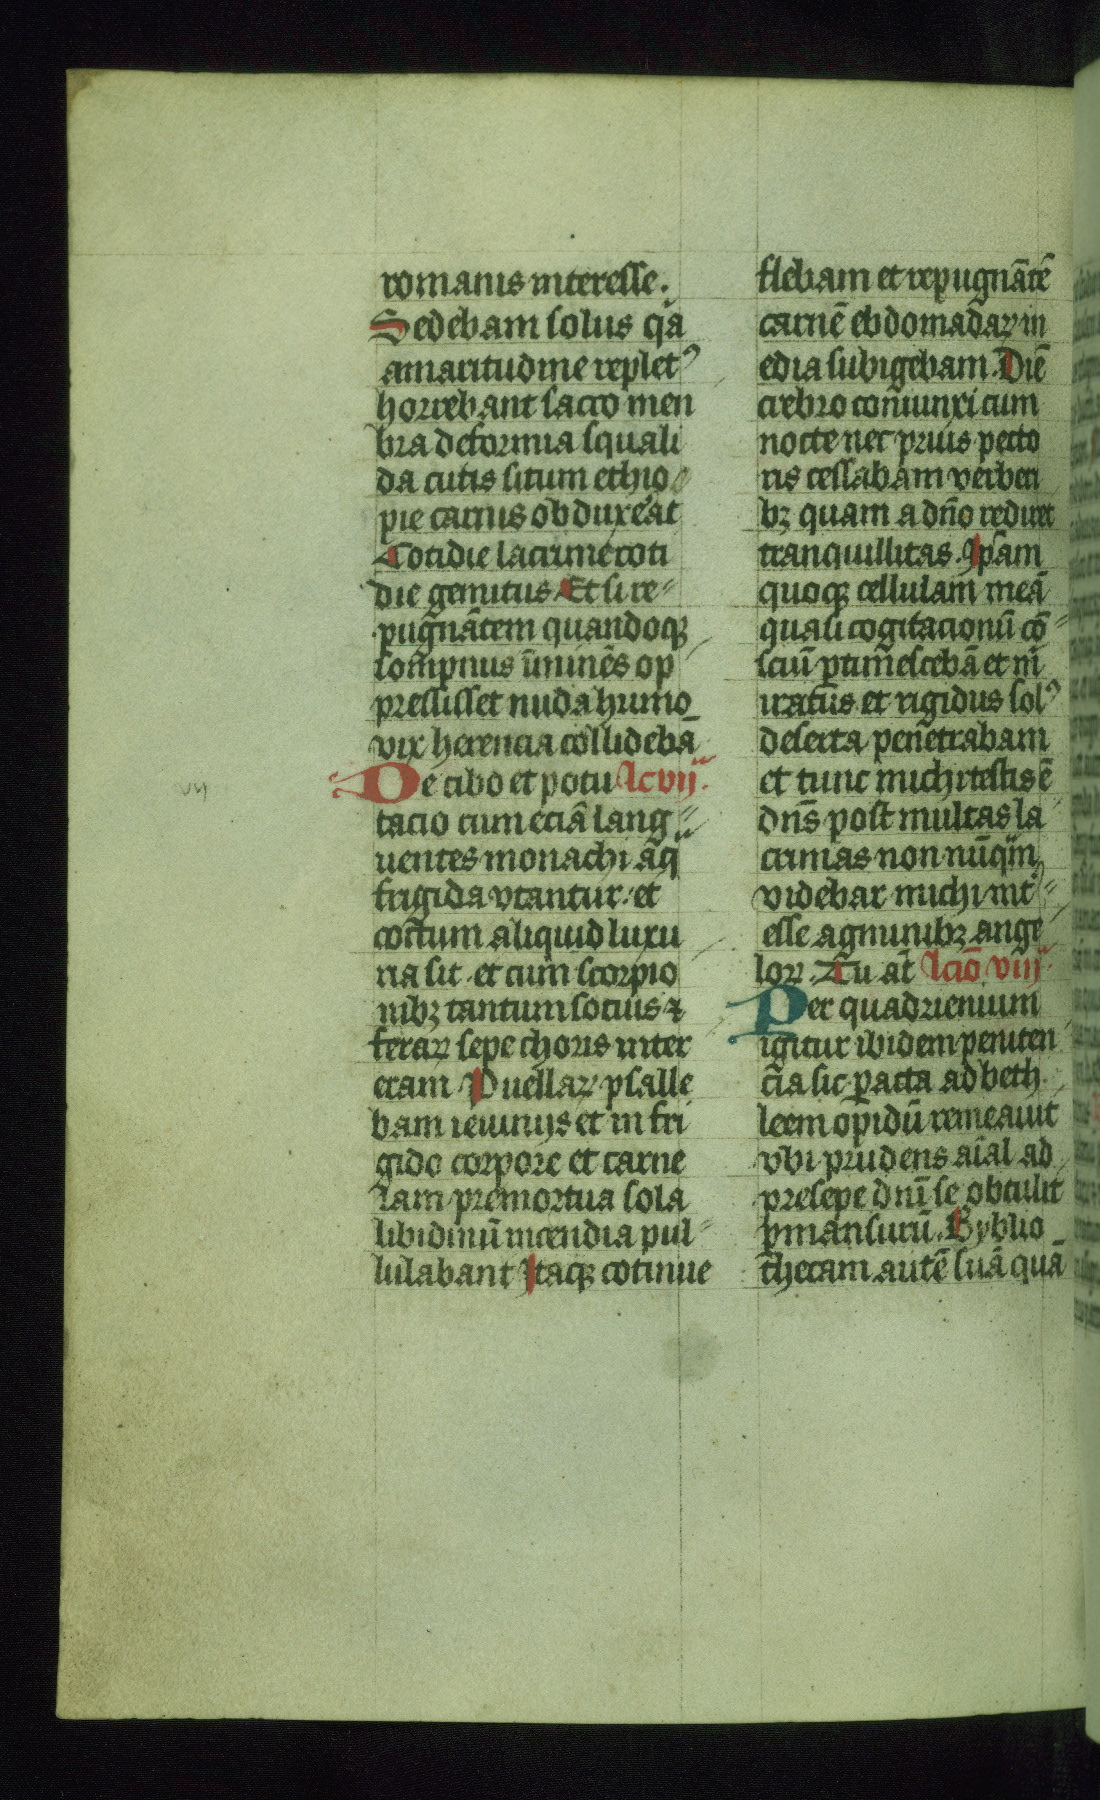 romanis interesse.
Sedebam solus q̄a
amaritudine replet⁹
horrebant sacco men
bra deformia squali
da cutis situm ethio
pie carnis obduxe᷑at
Cotidie lacrime coti
die gemitus. Et si re⸗
pugnātem quandoqꝫ
sompnus īminēs op
pressisset nuda humo
vix herencia collidebā
De cibo et potu lc̄ vij.
tacio cum eciā lang⸗
uentes monachi aq̄
frigida vtantur. et
coctum aliquid luxu
ria sit. et cum scorpio
nibꝫ tantum socius ⁊
feraꝝ sepe choris inter
eram Puellaꝝ psalle
bam ieiunijs et in fri
gido corpore et carne
iam premortua sola
libidinū incendia pul⸗
lulabant Itaqꝫ cotinue
flebam et repugnātē
carnē ebdomadaꝝ in
edia subigebam. Diē
crebro coniunxi cum
nocte nec prius pecto
ris cessabam verberi
bꝫ quam a dn̄o rediret
tranquillitas. Ipsam
quoqꝫ cellulam meā
quasi cogitacionū cō⸗
sciū ꝑtimescebā et m̄
iratus et rigidus sol⁹
deserta penetrabam
et tunc michi testis ē
dn̄s post multas la
crimas non nūqᷓm
videbar michi int̄⸗
esse agminibꝫ ange
loꝝ. Tu at̄ lcio viij
Per quadrienium
igitur ibidem peniten
cia sic ꝑacta ad beth
leem opidū remeauit
vbi prudens aīal ad
presepe dn̄i se obtulit
ꝑmansurū. Byblio
thecam autē suā quā
vij